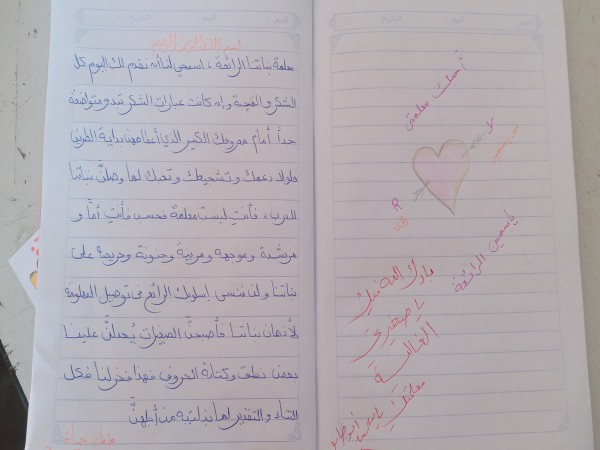 بسم الله الرحمن الرحيم
معلمة بناتنا الرائعة، اسمحي لنا أنه نقدم لك اليوم كل
الشكر والمحبة وإنه كانت عبارات الشكر تبدو متواضعة
جداً أمام معروفك الكبير الذي أعطانا بداية الطريق
فلولا دعمك وتشجيعك وتعبك لما وصلنَّ بناتنا
للدرب، فأنتِ ليست معلمة فحسب فأنتِ أمَّاً و
مرشدة وموجهة ومربية وحنونة وحريصة على
بناتنا ولن ننسى إسلوبك الرائع في توصيل المعلومة
لأذهان بناتنا فأصبحنَّ الصغيرات يُعدلنَّ علينا
بعض نطق وكتابة الحروف فهذا فخر لنا فكل
الثناء والتقدير لما بذلتيه من أجلهنَّ
التاريخ :
اليوم :
أحبك معلمتي
R
ياسمين الرائعة
بارك الله فيكِ
يا صغيرتي
الغالية
معلمتكِ